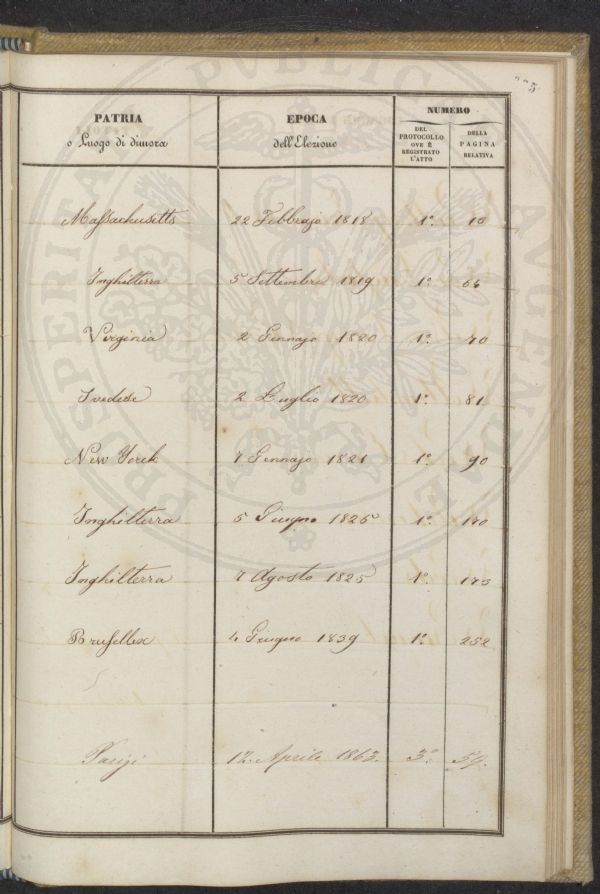 PROSPERITATI PUBLICAE AUGENDAE
PATRIA
o Luogo di dimora
EPOCA
dell'Elezione
NUMERO
DEL
PROTOCOLLO
OVE È
REGISTRATO
L'ATTO
DELLA
PAGINA
RELATIVA
Massachusetts 22 Febbrajo 1818 1°. 10
Inghilterra 5 Settembre 1819 1°. 64
Virginia 2 Gennajo 1820 1°. 70
Svedese 2 Luglio 1820 1°. 81
New Yorck 7 Gennajo 1821 1°. 90
Inghilterra 5 Giugno 1825 1°. 170
Inghilterra 7 Agosto 1825 1°. 173
Brusellex 4 Giugno 1839 1°. 252
Parigi 12. Aprile 1863. 3°.